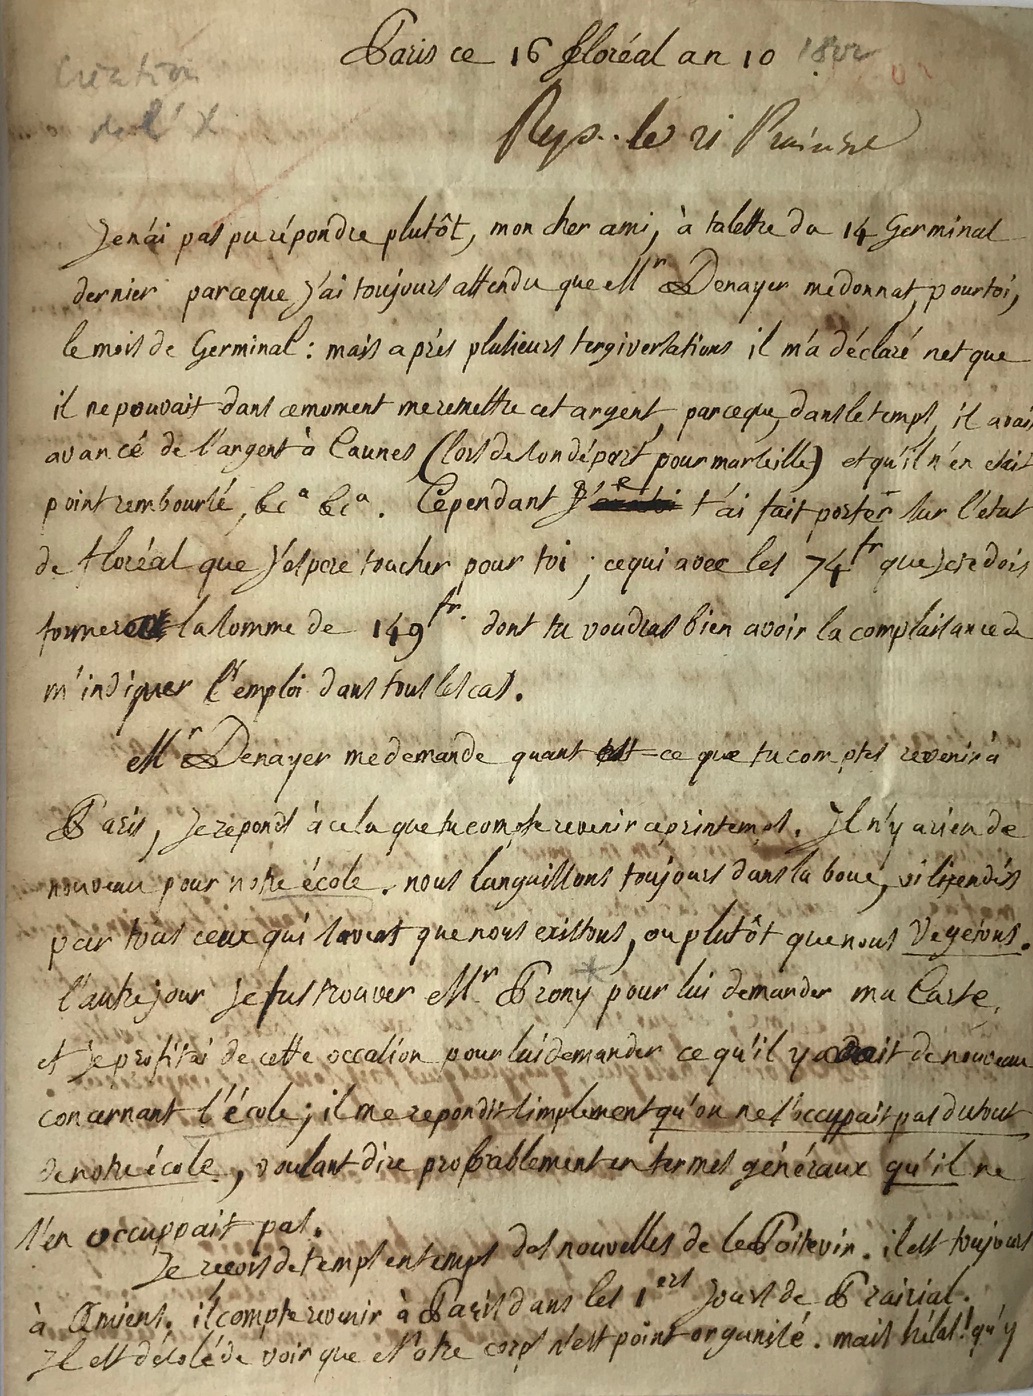 Paris ce 16 floréal an 10 1802
création
de l'X
Rep. le 21 Prairial
Je n'ai pas pu répondre plutôt, mon cher ami, à ta lettre du 14 Germinal
dernier parceque j'ai toujours attendu que Mr Denayer me donnat, pour toi,
le mois de Germinal : mais après plusieurs tergiversations il m'a déclaré net que
il ne pouvait dans ce moment me remettre cet argent, parceque, dans le temps, il avait
avancé de l'argent à Caunes (lors de son départ pour marseille) et qu'il n'en etait
point remboursé, &ca &ca. Cependant je t'ai fait porter sur l'état
de floréal que j'espere toucher pour toi ; ce qui avec les 74fr que je te dois
former la somme de 149fr. dont tu voudras bien avoir la complaisance de
m'indiquer l'emploi dans tous les cas.
Mr Denayer me demande quant est-ce que tu comptes revenir à
Paris, je reponds à cela que tu compte revenir ce printemps. Il n'y a rien de
nouveau pour notre école. nous languissons toujours dans la boue, vilipendés
par tous ceux qui savent que nous existons, ou plutôt que nous Vegetons.
l'autre jour je fus trouver Mr Prony pour lui demander ma Carte,
et je profitai de cette occasion pour lui demander ce qu'il y avait de nouveau
concernant l'école ; il me repondit simplement qu'on ne s'occuppait pas du tout
de notre école, voulant dire probablement en termes généraux qu'il ne
s'en occuppait pas.
Je reçois de temps en temps des nouvelles de le Poitevin. il est toujours
à Amiens. il compte revenir à Paris dans les 1ers jours de Prairial.
Il est désolé de voir que Notre corps n'est point organisé. mais hélas ! qu'y